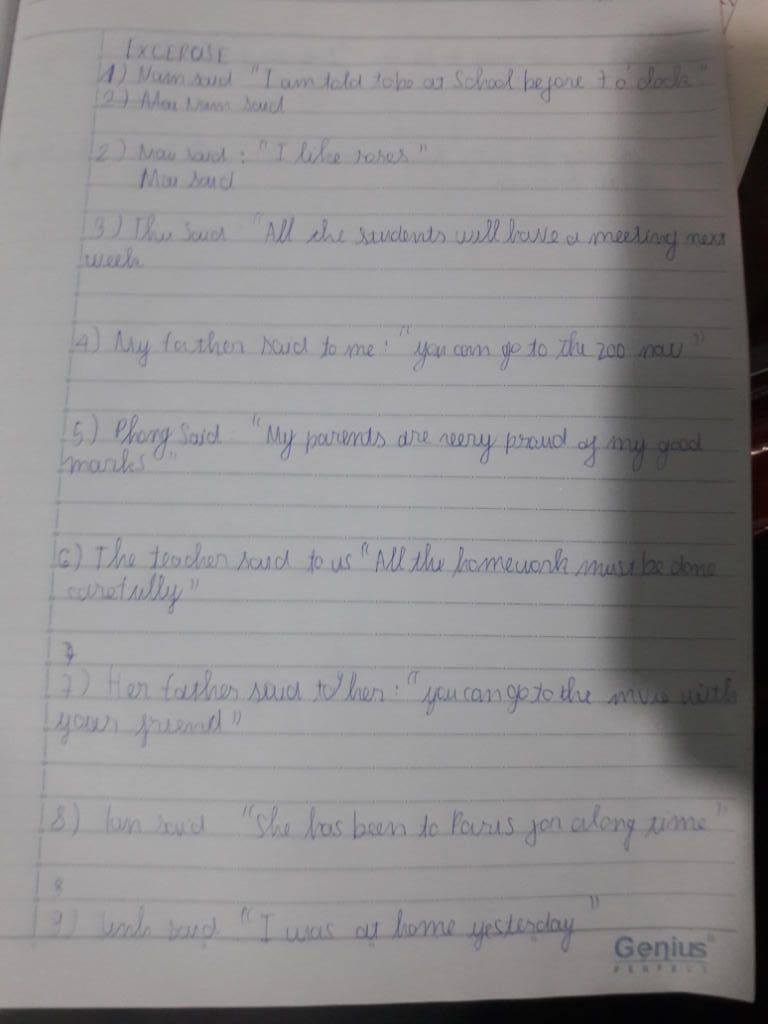 EXCEROSE
1) Nam said "I am told to be at School before 7 o'clock"
2) Mai Nam said
2) Mai said : "I like roses"
Mai said
3) Thu said : "All the students will have a meeting next
week
4) My father said to me : "you can go to the zoo now"
5) Phong said : "My parents are veery proud of my good
marks"
6) The teacher said to us "All the homework must be done
carefully"
7
7) Her father said to her : "you can go to the with
your friend"
8) said "She has been to Paris for along time"
8
9) said "I was at home yesterday"
Genius
PERFECT